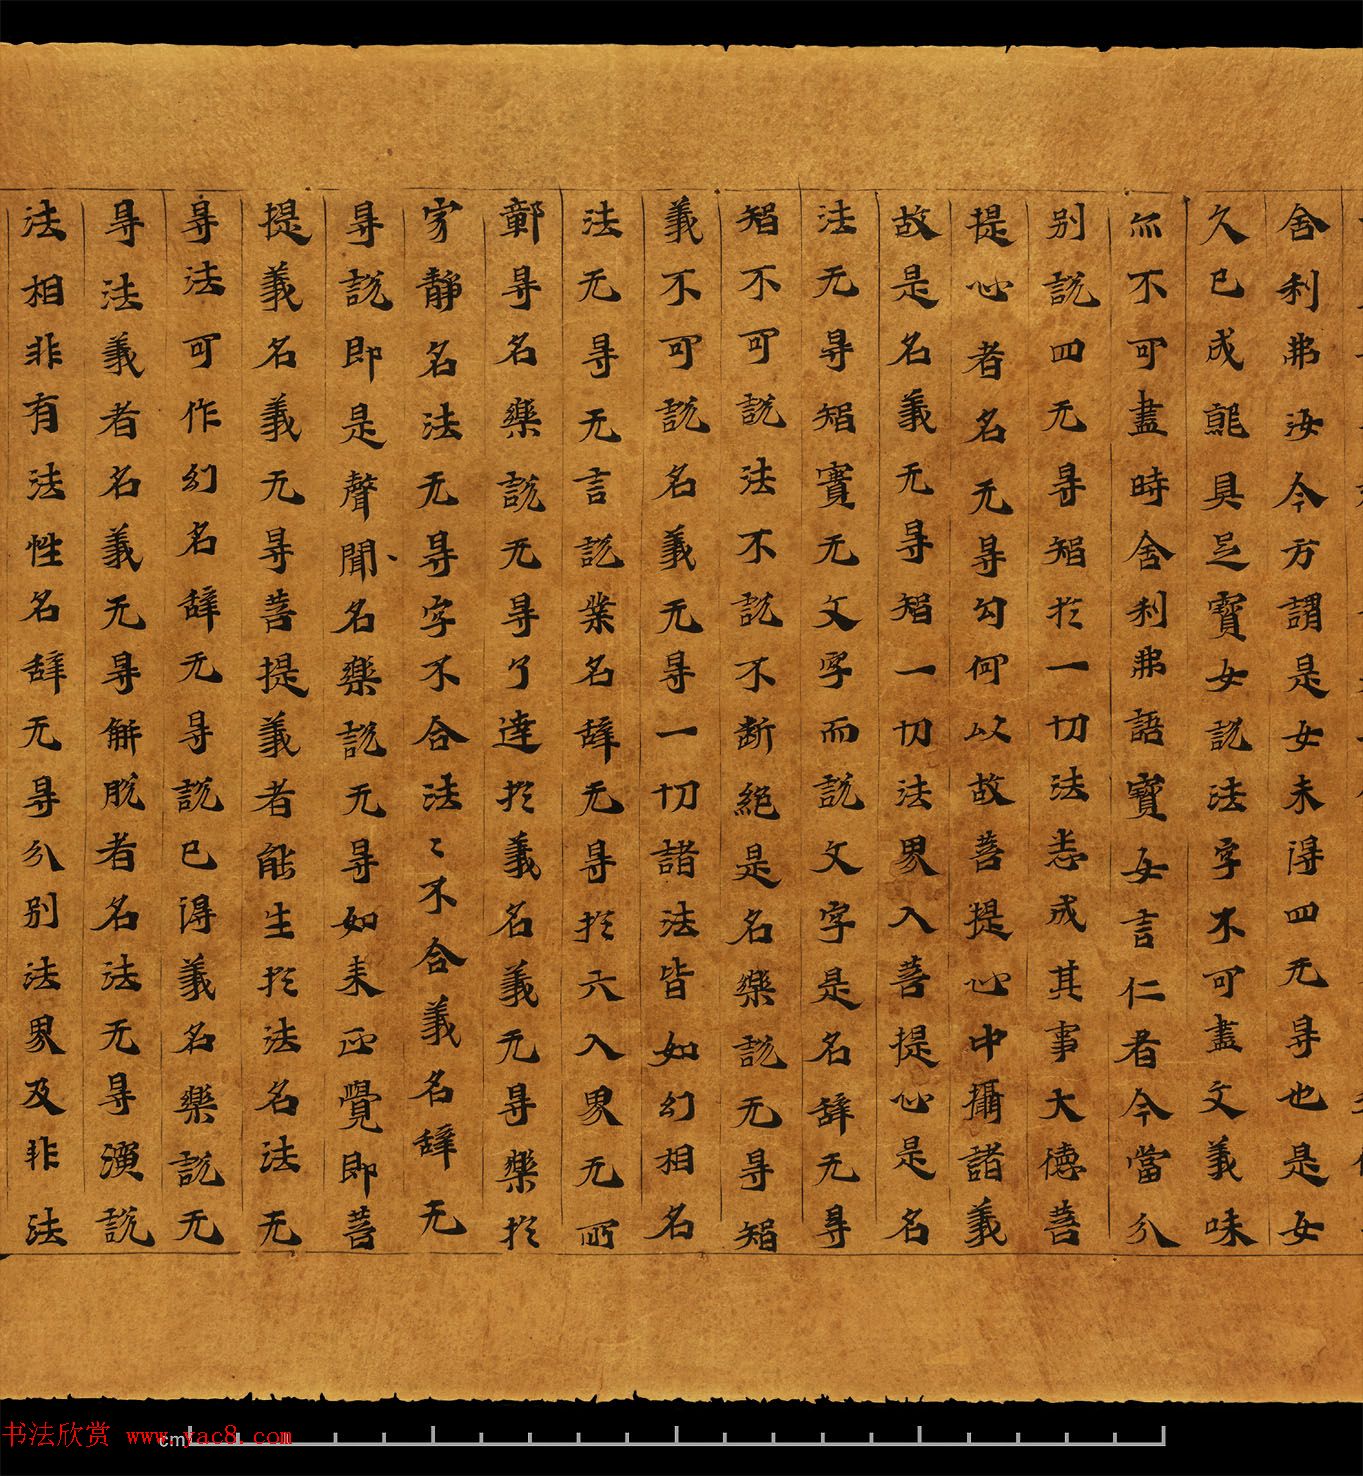 舍利弗汝今方謂是女未得四无㝵也是女
久已成就具足寶女說法字不可盡文義味
尒不可盡時舍利弗語寶女言仁者今當分
別說四无㝵智於一切法悉成其事大德菩
提心者名无㝵句何以故菩提心中攝諸義
故是名義无㝵智一切法界入菩提心是名
法无㝵智實无文字而說文字是名辞无㝵
智不可說法不說不断絕是名樂說无㝵智
義不可說名義无㝵一切諸法皆如幻相名
法无㝵无言說業名辞无㝵於六入界无所
鄣㝵名樂說无㝵了達於義名義无㝵樂於
𡧘靜名法无㝵字不合法〻不合義名辞无
㝵說即是聲聞名樂說无㝵如来正覺即菩
提義名義无㝵菩提義者能生於法名法无
㝵法可作幻名辞无㝵說已得義名樂說无
㝵法義者名義无㝵解脫者名法无㝵演說
法相非有法性名辞无㝵分別法界及非法
书法欣赏 www.yac8.com
cm